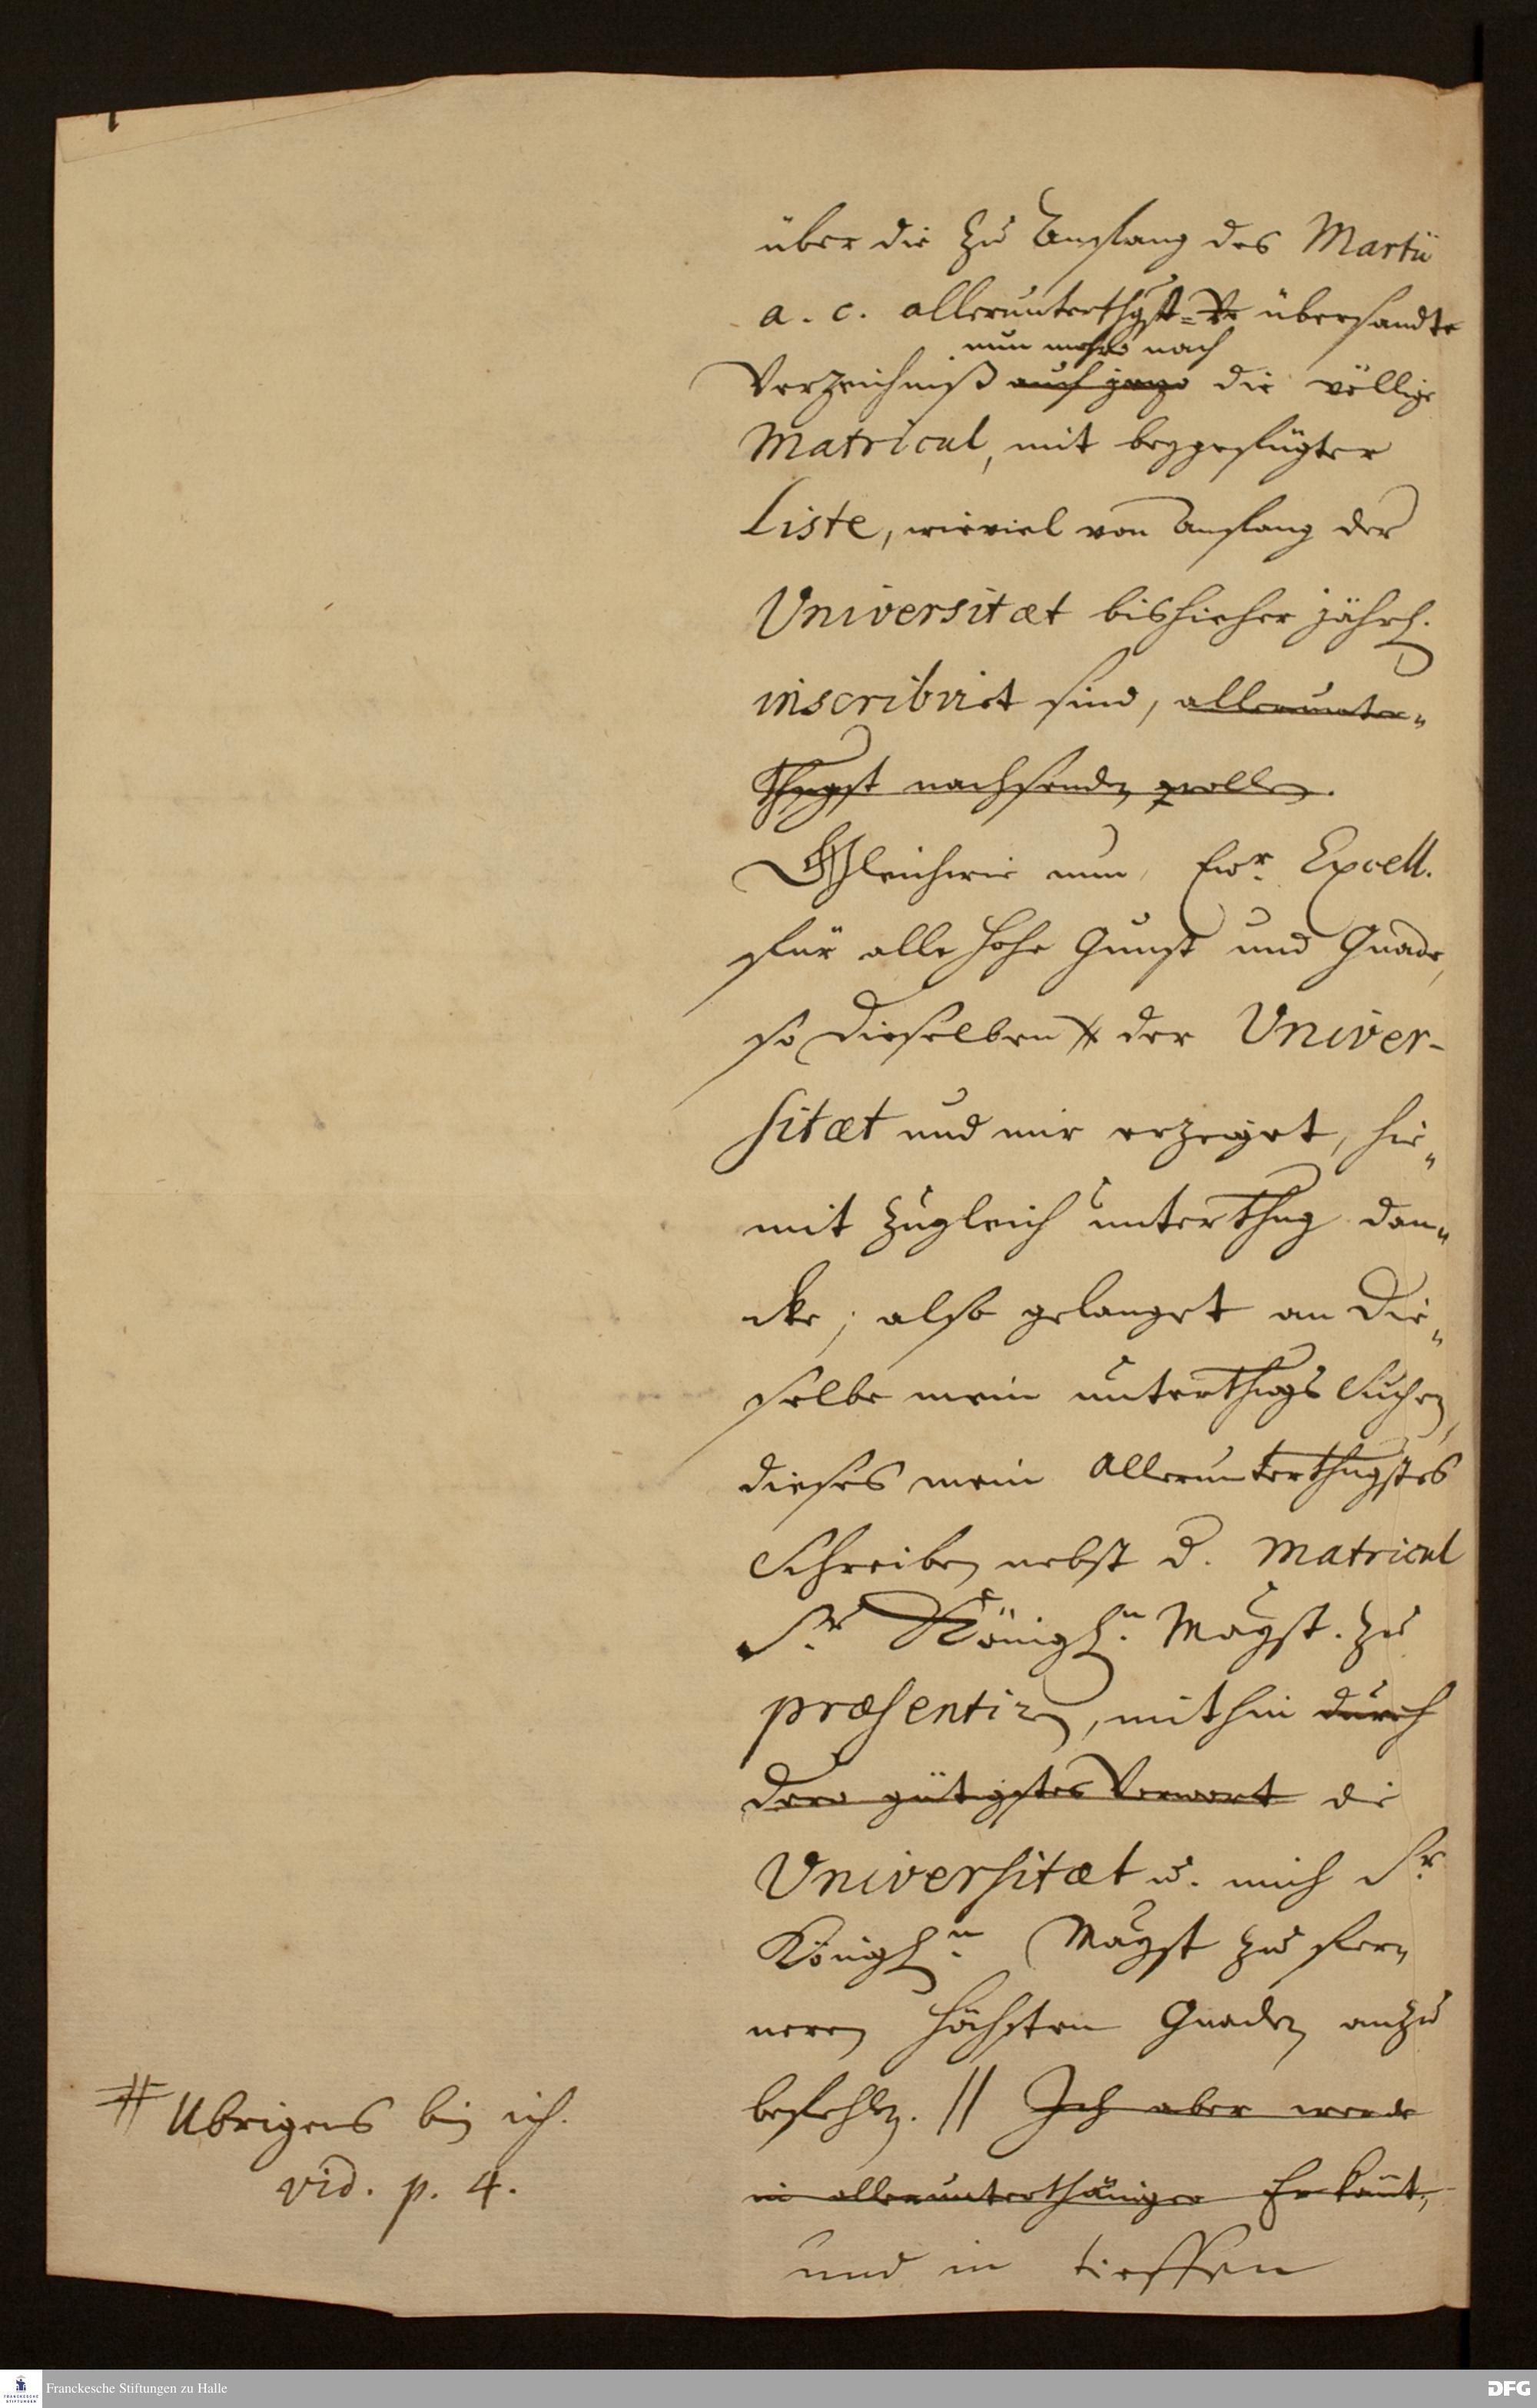 über die zu Anfang des Martii
a. c. allerunterthgst übersandte
nun mehro nach
Verzeichniß auch jezo die völlige
Matricul, mit beygefügter
Liste, wieviel von Anfang der
Universitæt bishieher jährl.
inscribirt sind, allerunter„
thngst nachsenden wollen.
Gleichwie nun Ewr. Excell.
für alle hohe Gunst und Gnade,
so dieselben der Univer-
sitæt und mir erzeiget, hie„
mit zugleich unterthng dan„
cke; also gelanget an Die„
selbe mein unterthngs Suchen,
dieses mein Allerunterthngstes
Schreiben nebst d. Matricul
Sr. Königln. Mayst. zu
præsentiren, mithin durch
dero gütigstes Vorwort die
Universitæt u. mich Sr.
Königln. Mayst zu fer„
neren höchsten Gnaden anzu
befehlen. // Ich aber werde
# Ubrigens bin ich.
vid. p. 4.
in allerunterthäniger Erkänt„
und in tieffen
Franckesche Stiftungen zu Halle
DFG